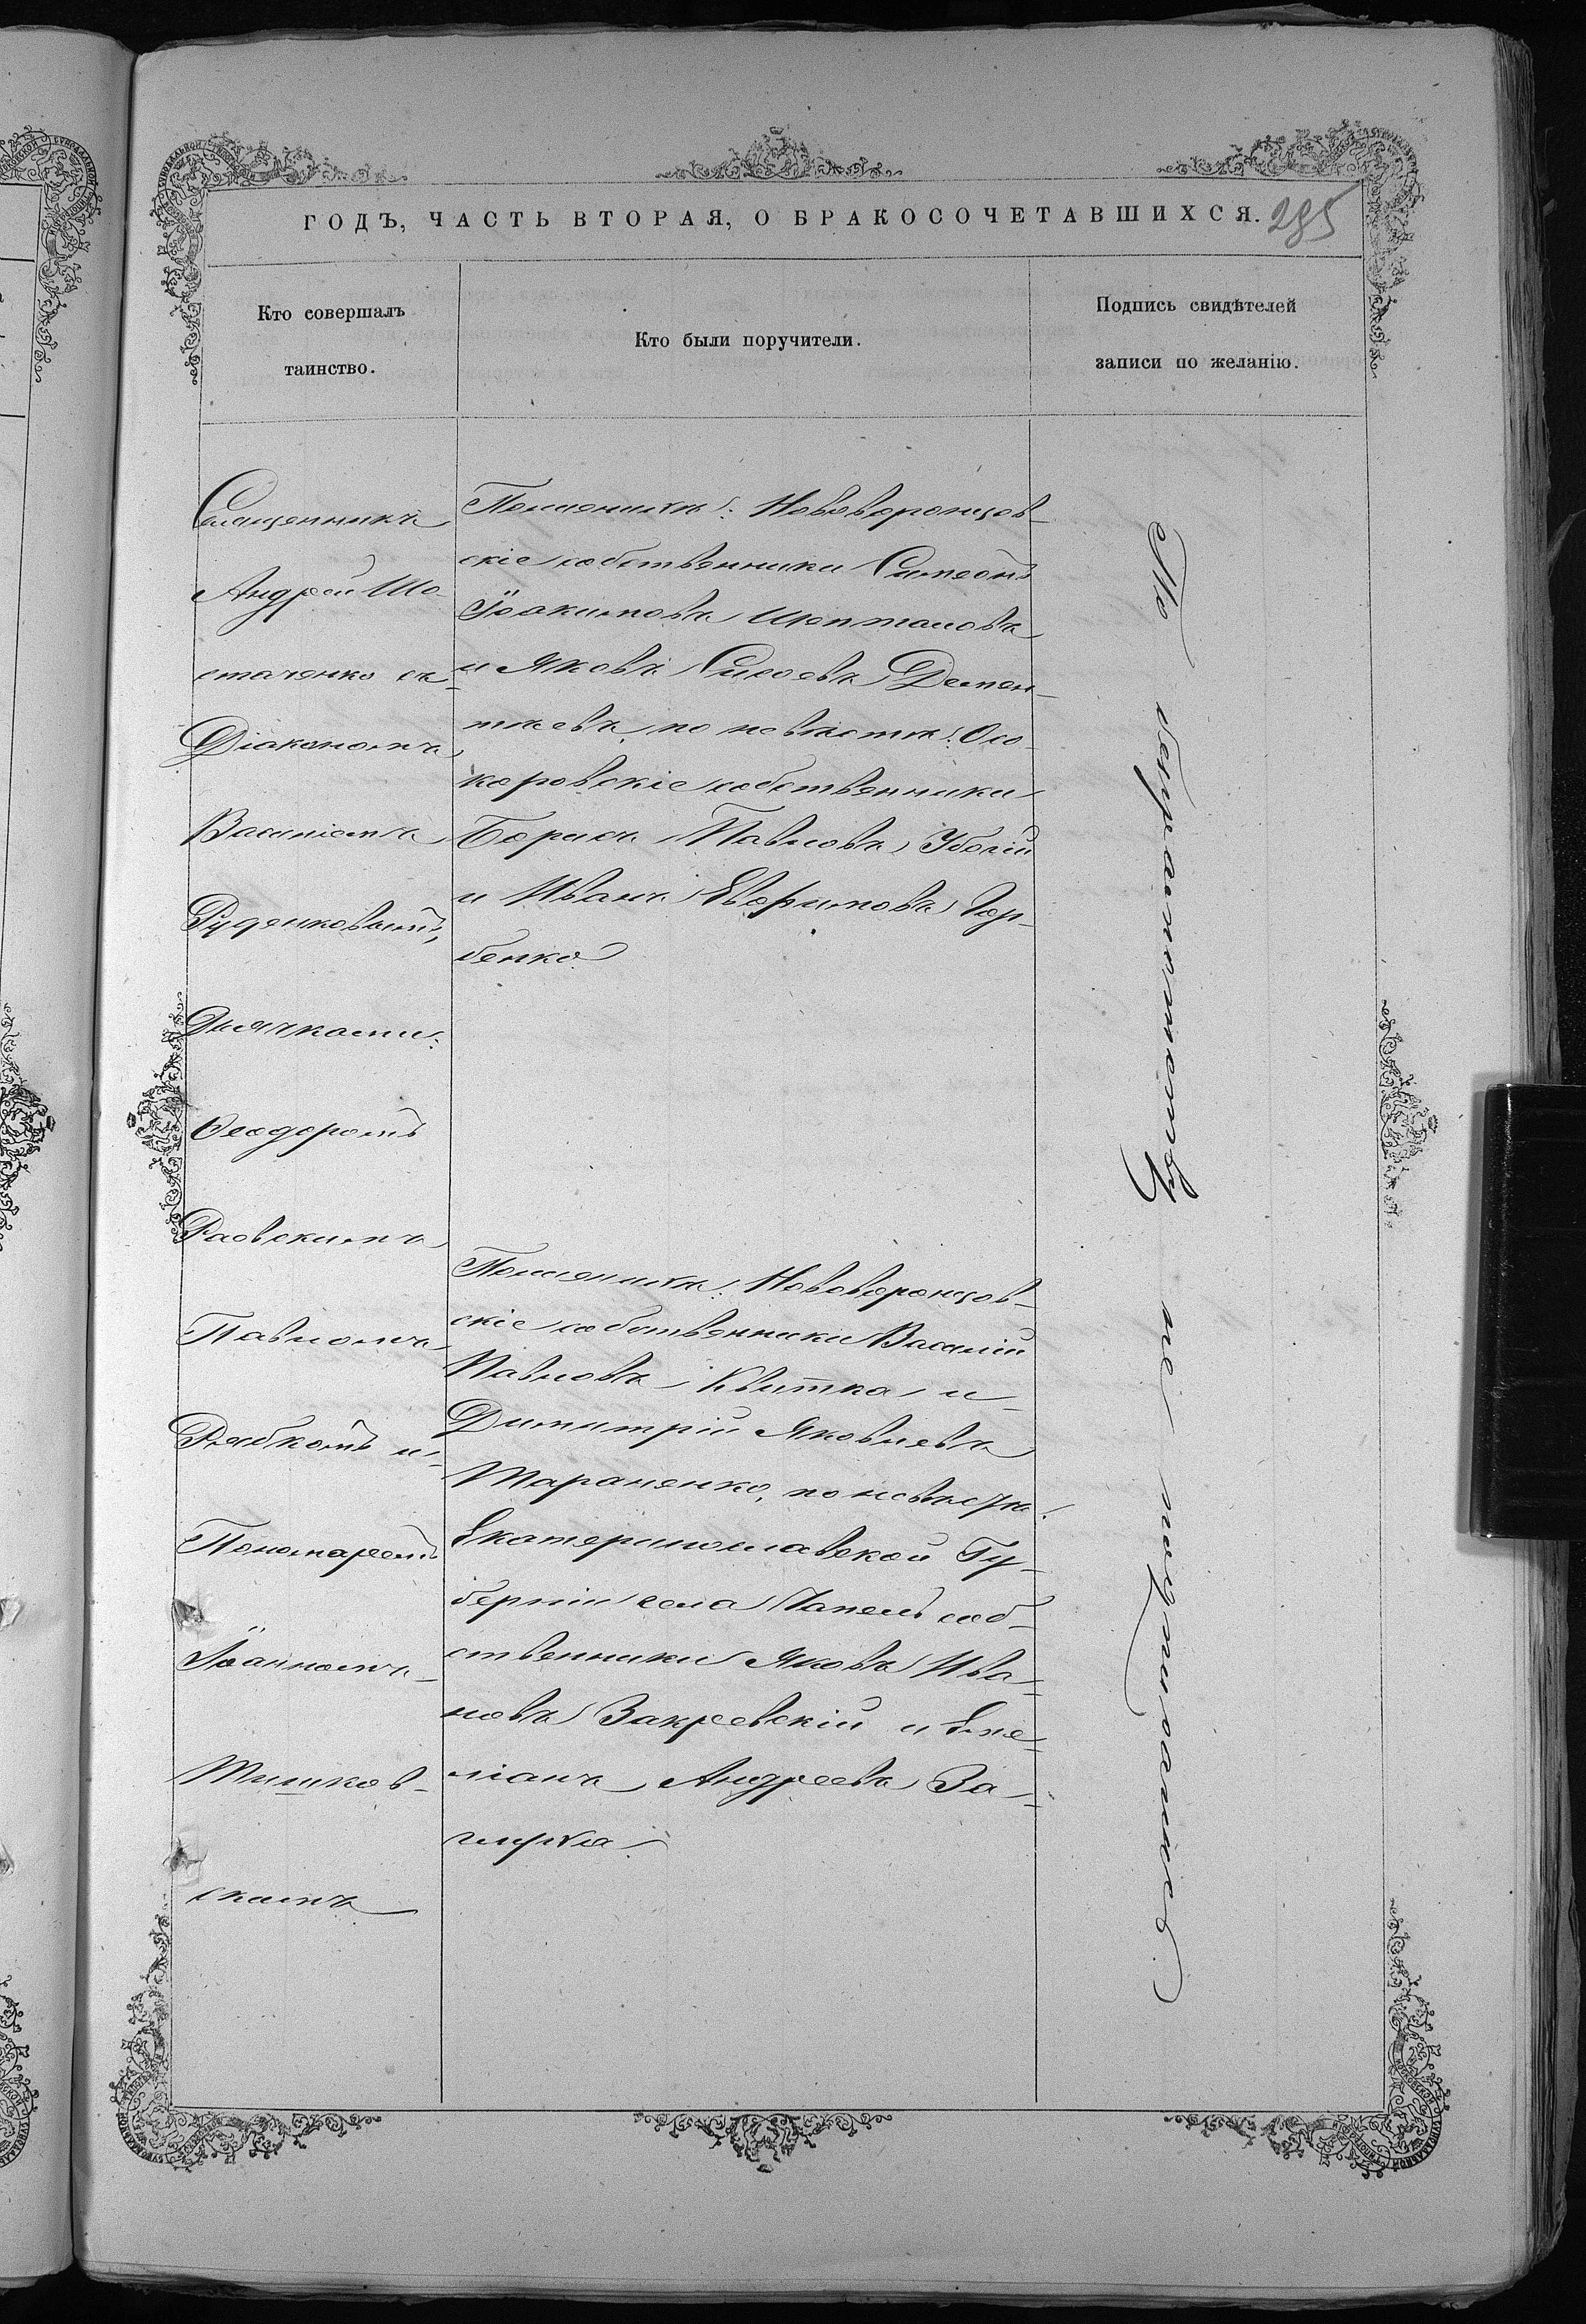 ГОДЪ, ЧАСТЬ ВТОРАЯ, О БРАКОСОЧЕТАВШИХСЯ. 285
Кто совершалъ
таинство.
Кто были поручители.
Подпись свидѣтелей
записи по желанію.
Священникъ
Андрей Шо-
стаченко съ
Діакономъ
Василіемъ
Руденковымъ,
Дьячками:
Ѳеодоромъ
Раевскимъ
Павломъ
Рябкомъ и
Пономаремъ
Іоанномъ
Тишков-
скимъ
По женихѣ: Нововоронцов-
скіе собственники Симеонъ
Іоакимовъ
и Яковъ Сисоевъ Демен-
тьевъ, по невѣстѣ: Осо-
коровскіе собственники
Борисъ Павловъ Убогій
и Иванъ Евфимовъ Гор-
бенко
По женихѣ: Нововоронцов-
скіе собственники Василій
Павловъ Квитка и
Димитрій Яковлевъ
Тараненко, по невѣстѣ:
Екатеринославской Гу-
берніи села собт-
ственники Яковъ Ива-
новъ Закревскій и Еме-
ліанъ Андреевъ За-